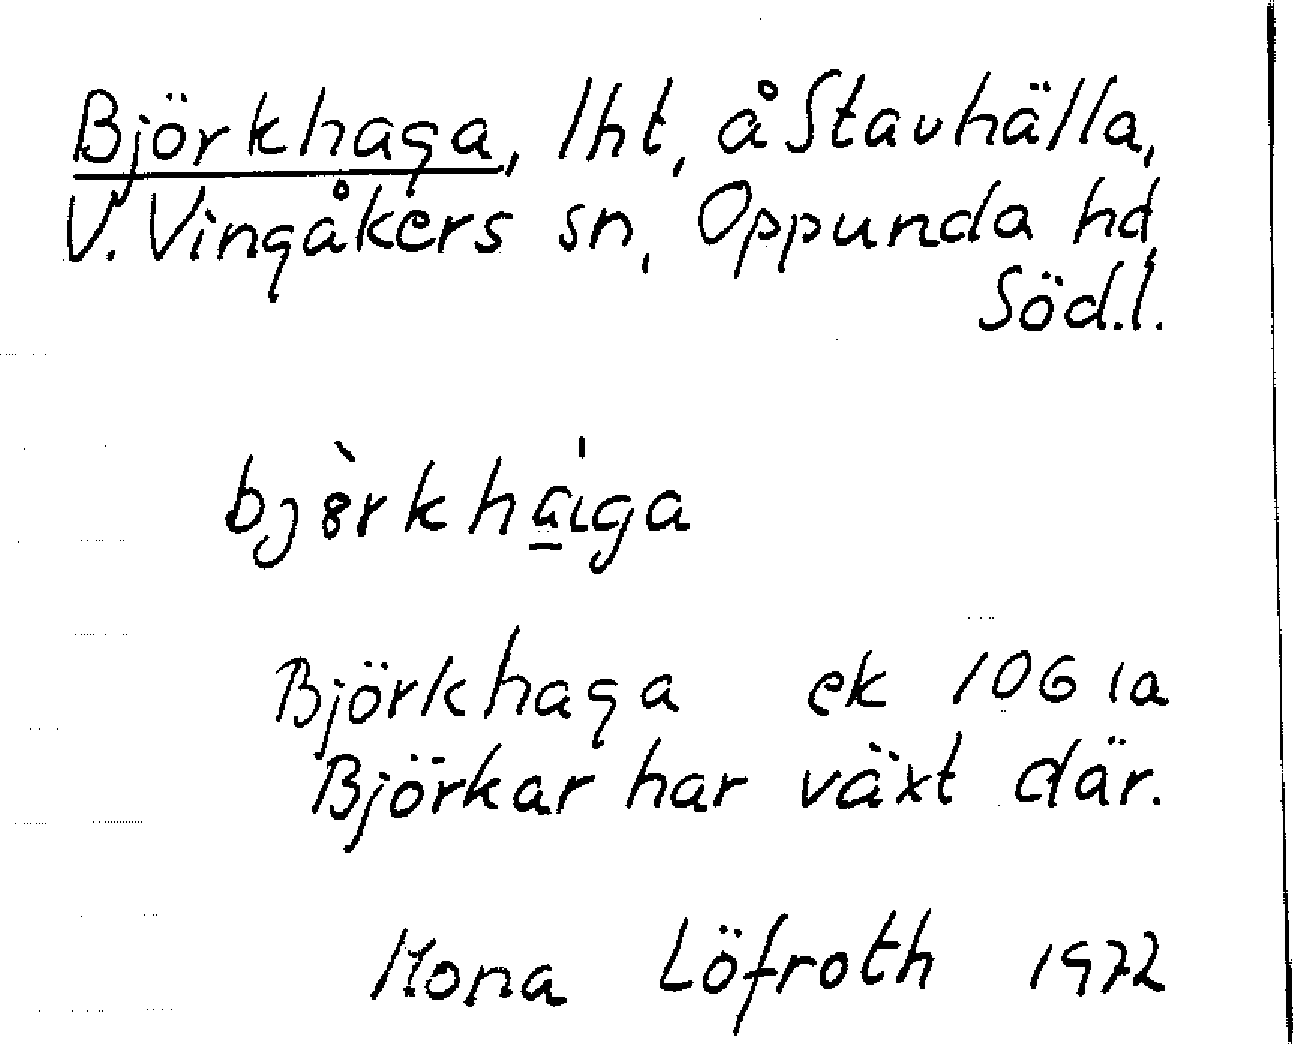 Björkhaga, lht, å Stavhälla,
V. Vingåkers sn, Oppunda hd,
Söd.l.
bjèrkha̱'ɩga
Björkhaga ek 1061a
Björkar har växt där.
Mona Löfroth 1972